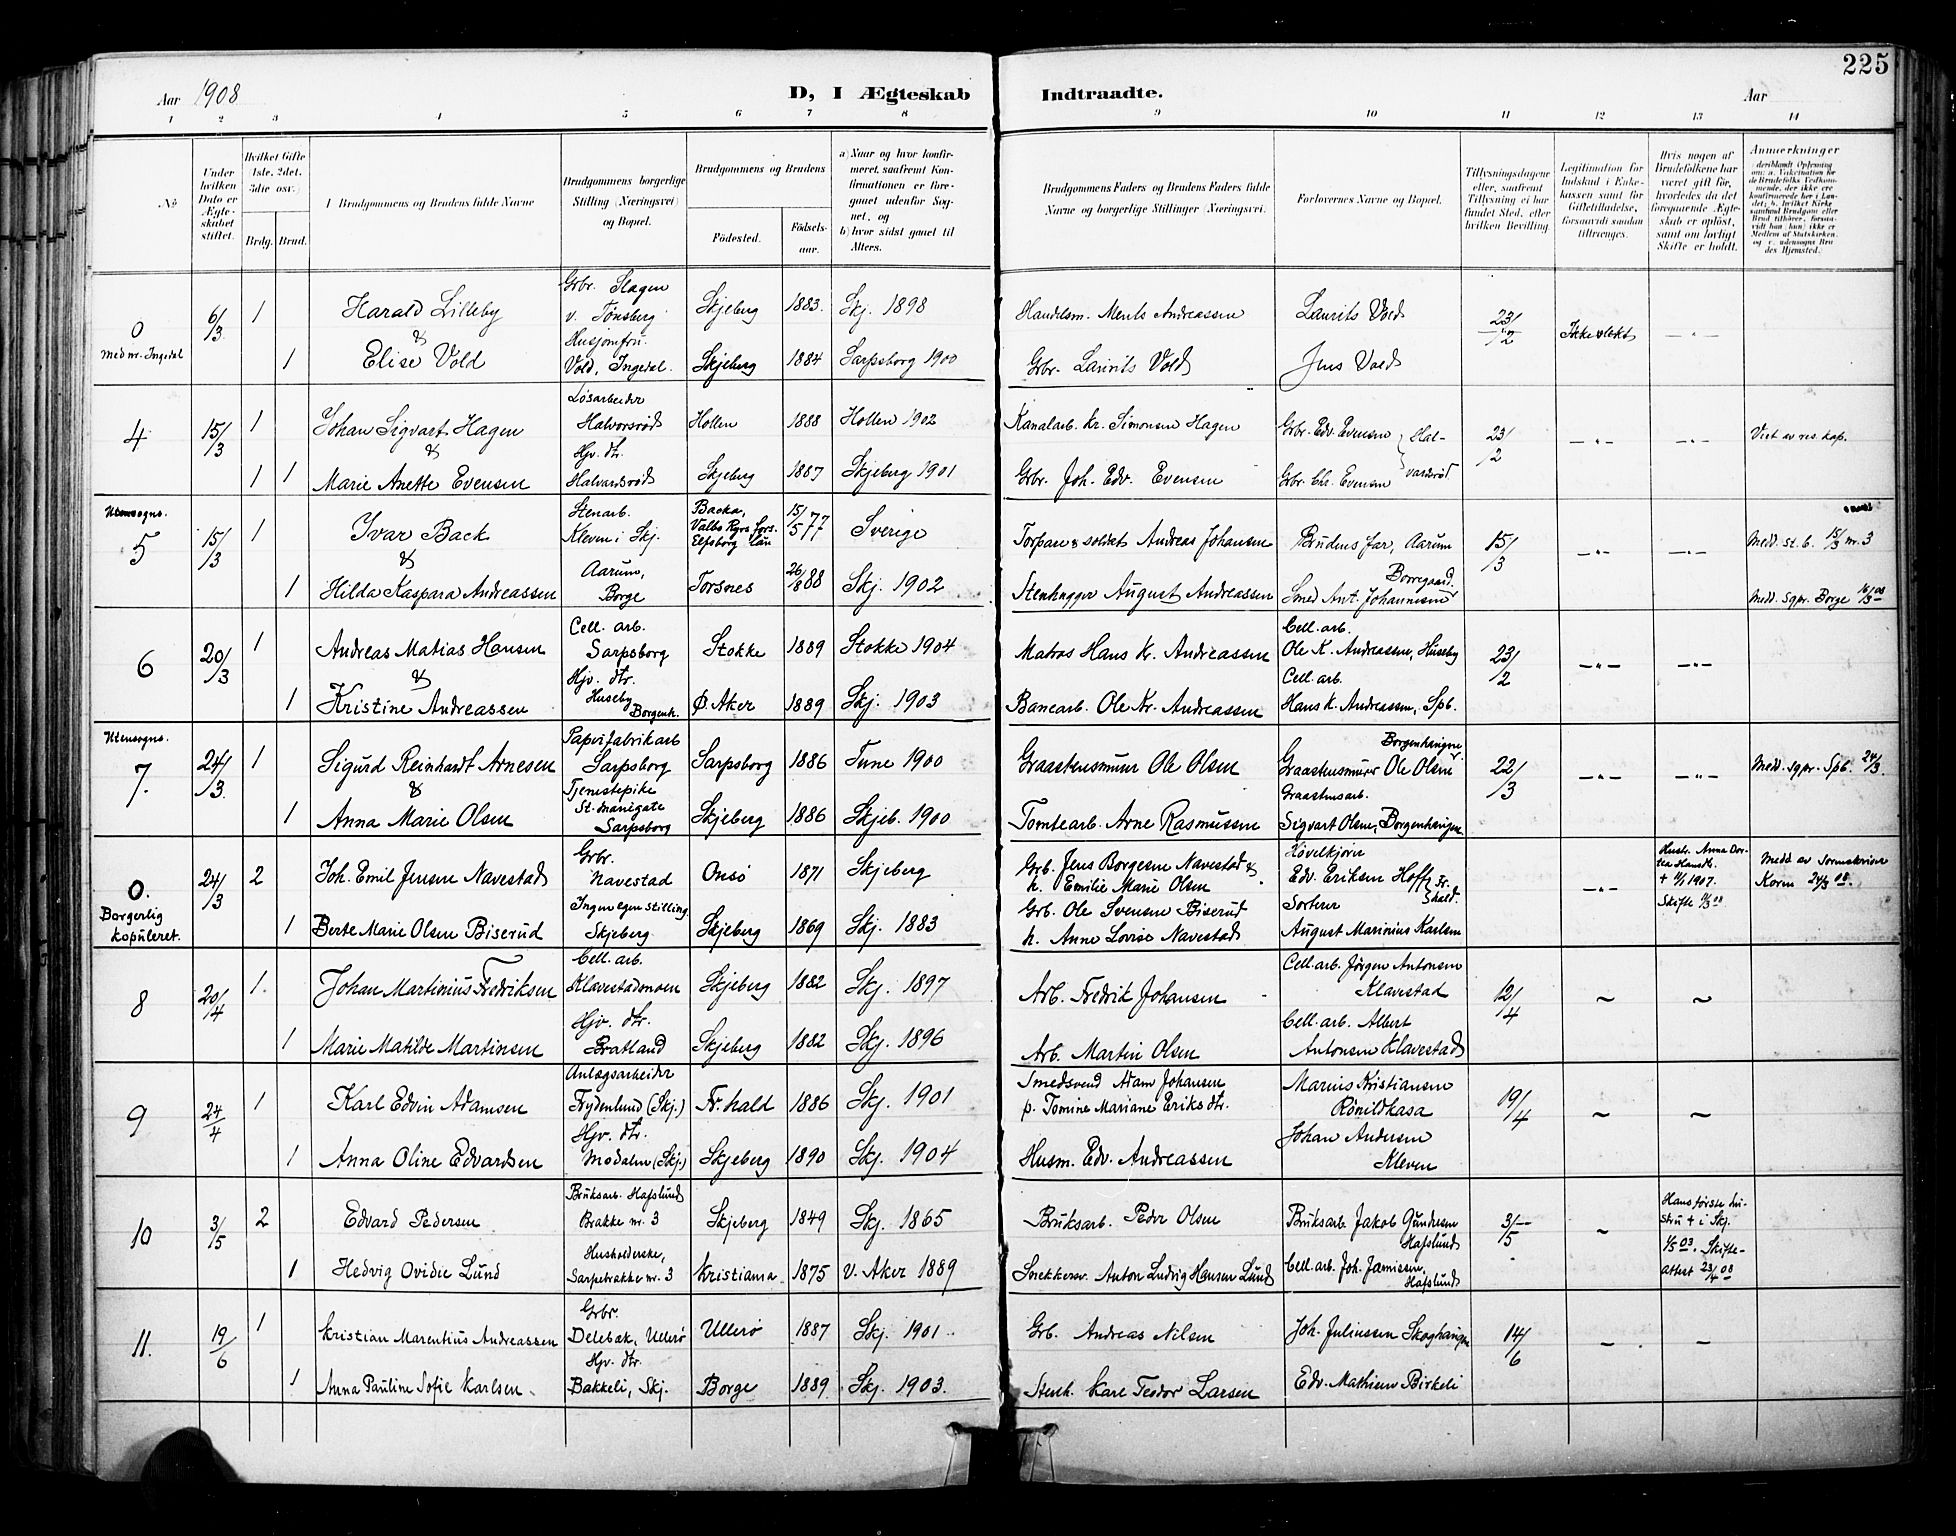 225
Aar 1908
D, I Ægteskab Indtraadte.
Aar
1 2 3 4 5 6 7 8 9 10 11 12 13 14
No.
Under hvilken Dato er Ægteskabet stiftet.
Hvilket Gifte 1ste, 2det, 3die osv.)
Brdg. Brud.
I Brudgommens og Brudens fulde Navne
Brudgommens borgerlige Stilling (Næringsvei) og Bopæl.
Brudgommens og Brudens
Fødested. Fødselsaar.
a) Naar og hvor konfirmeret, saafremt Konfirmationen er foregaaet udenfor Sognet, og
b) hvor sidst gaaet til Alters.
Brudgommens Faders og Brudens Faders fulde Navne og borgerlige Stillinger (Næringsvei).
Forlovernes Navne og Bopæl.
Tillysningsdagene eller, saafremt Tillysning ei har fundet Sted, efter hvilken Bevilling.
Legitimation for Indskud i Enkekassen samt for Giftetilladelse, forsaavidt saadan tiltrænges.
Hvis nogen af Brudefolkene har været gift før, hvorledes da det foregaaende Ægteskab er opløst, samt om lovligt Skifte er holdt.
Anmærkninger
0 Medmr. Ingedal 6/3 1 Harald Lilleby Grbr. Slagen v. Tønsberg Skjeberg 1883. Skj. 1898 Handelsm. Ments Andreassen Laurits Vold 23/2 Ikke vlekt — " —
&
1 Elise Vold Husjomfru Vold, Ingedal. Skjeberg 1884 Sarpsborg 1900 Grbr. Laurits Vold Jens Vold
4 15/3 1 Johan Sigvart Hagen Løsarbeider Halvorsrød Hollen 1888 Hollen 1902 Kanalarb. Kr. Simonsen Hagen Grbr. Edv. Evensen Halvardsrød 23/2 — " — — " — Viet av res. kap.
&
1 1 Marie Anette Evensen Hjv. dtr. Halvardsrød Skjeberg 1887 Skjeberg 1901 Grbr. Joh. Edv. Evensen Grbr. Chr. Evensen
Utensogns.
5 15/3 1 Ivar Back Stenarb. Kleven i Skj. Backa, Valbo Ryrs sors. Elfsborg län 15/5 77 Sverige Torpare & soldat Andreas Johansen Brudens far, Aarum 15/3 — " — — " — Medd. st. b. 15/3 nr. 3
&
1 Hilda Kaspara Andreassen Aarum, Borge Torsnes 26/8 88 Skj. 1902 Stenhugger August Andreassen Smed Ant. Johannesen Borregaard. Medd. sgpr. Borge 16/3 08
6 20/3 1 Andreas Matias Hansen Cell. arb. Sarpsborg Stokke 1889 Stokke 1904 Matros Hans Kr. Andreassen Cell. arb. Ole K. Andreassen, Huseby 23/2 — " — — " —
&
1 Kristine Andreassen Hjv. dtr. Huseby Borgenh. Ø. Aker 1889 Skj. 1903 Banearb. Ole Kr. Andreassen Cell. arb. Hans K. Andreassen, Spb.
Utensogns.
7. 24/3. 1 Sigurd Reinhardt Arnesen Papirfabrikarb Sarpsborg Sarpsborg 1886 Tune 1900 Graastensmurer Ole Olsen Graastensmurer Ole Olsen Borgenhaugen 22/3 — " — — " — Medd. sgpr. Spb. 24/3.
&
1 Anna Marie Olsen Tjenestepike St. Mariegate Sarpsborg Skjeberg 1886 Skjeb. 1900 Tomtearb. Arne Rasmussen Graastensarb. Sigvart Olsen, Borgenhaugen
0. Borgerlig kopuleret. 24/3 2 Joh. Emil Jensen Navestad Grbr. Navestad Onsö 1871 Skjeberg Grb. Jens Borgesen Navestad & h. Emilie Marie Olsen Høvelkjører Edv. Eriksen Hoff Fr. hald. — " — Hustr. Anna Dortea Hansdt. + 11/1 1907. Skifte 9/3 08 Medd av Sorenskriver Koren 24/3 08.
1 Berte Marie Olsen Biserud Ingen egen stilling Skjeberg Skjeberg 1869 Skj. 1883 Grb. Ole Svensen Biserud h. Anne Lovise Navestad Sorterer August Marinius Karlsen
8 20/4 1. Johan Martinius Fredriksen Cell. arb. Klavestadmoen Skjeberg 1882 Skj. 1897 Arb. Fredrik Johansen Cell. arb. Jörgen Antonsen Klavestad 12/4 ~ ~
1 Marie Matilde Martinsen Hjv. dtr. Bratland Skjeberg 1882 Skj. 1896 Arb. Martin Olsen Cell. arb. Albert Antonsen Klavestad
9 24/4 1 Karl Edvin Adamsen Anlægsarbeider Frydenlund (Skj.) Fr. hald 1886 Skj. 1901 Smedsvend Adam Johansen p. Tomine Mariane Eriks dtr. Marius Kristiansen Rönildkasa 19/4 ~ ~
1 Anna Oline Edvardsen Hjv. dtr. Modalen (Skj.) Skjeberg 1890 Skj. 1904 Husm. Edv. Andreassen Johan Andersen Kleven
10 3/5 2 Edvard Pedersen Bruksarb. Hafslund Brakke nr. 3 Skjeberg 1849 Skj. 1865 Bruksarb. Peder Olsen Bruksarb. Jakob Gundersen Hafslund 3/5 ~ Hans første hustru + i Skj. 1/5 03. Skifteattest 23/4 08
1 Hedvig Ovidie Lund Husholderske, Sarpebrakke nr. 3 Kristiania 1875 V. Aker 1889 Snekkersv. Anton Ludvig Hansen Lund Cell. arb. Joh. Jamissen, Hafslund
11. 19/6 1 Kristian Marentius Andreassen Grbr. Delebæk, Ullerø Ullerø 1887 Skj. 1901 Grb. Andreas Nilsen Joh. Juliussen Skoghaugen 14/6 ~ ~
1 Anna Pauline Sofie Karlsen Hjv. dtr. Bakkeli, Skj. Borge 1889. Skj. 1903. Stenh. Karl Teodor Larsen Edv. Mathisen Birkeli